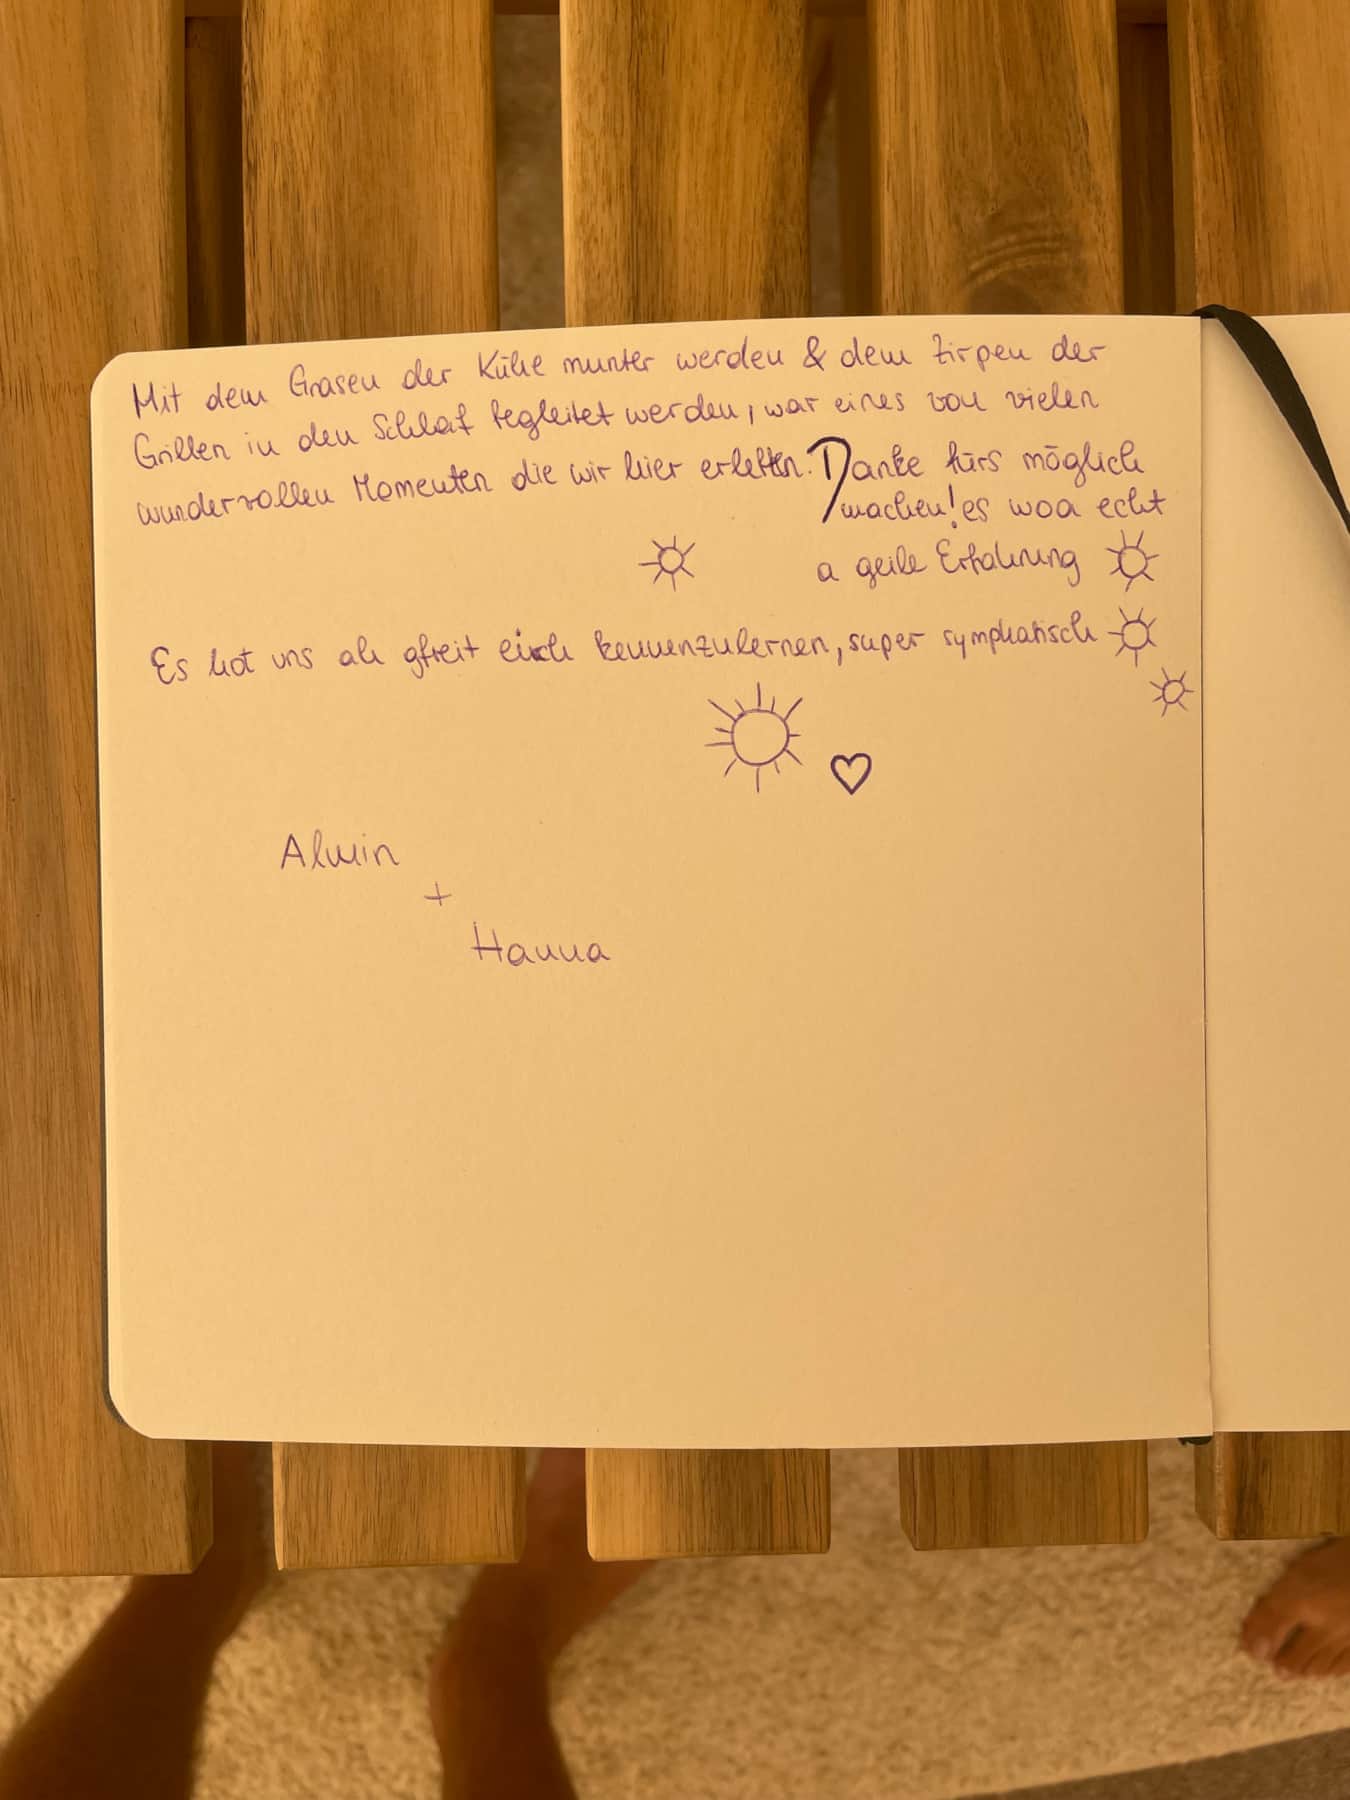 Mit dem Grasen der Kühe munter werden & dem Zirpen der
Grillen in den Schlaf begleitet werden, war eines von vielen
wundervollen Momenten die wir hier erlebten. Danke fürs möglich
machen! es woa echt
a geile Erfahrung
Es hot uns ah gfreit eich kennenzulernen, super symphatisch
Alwin
+
Hanna